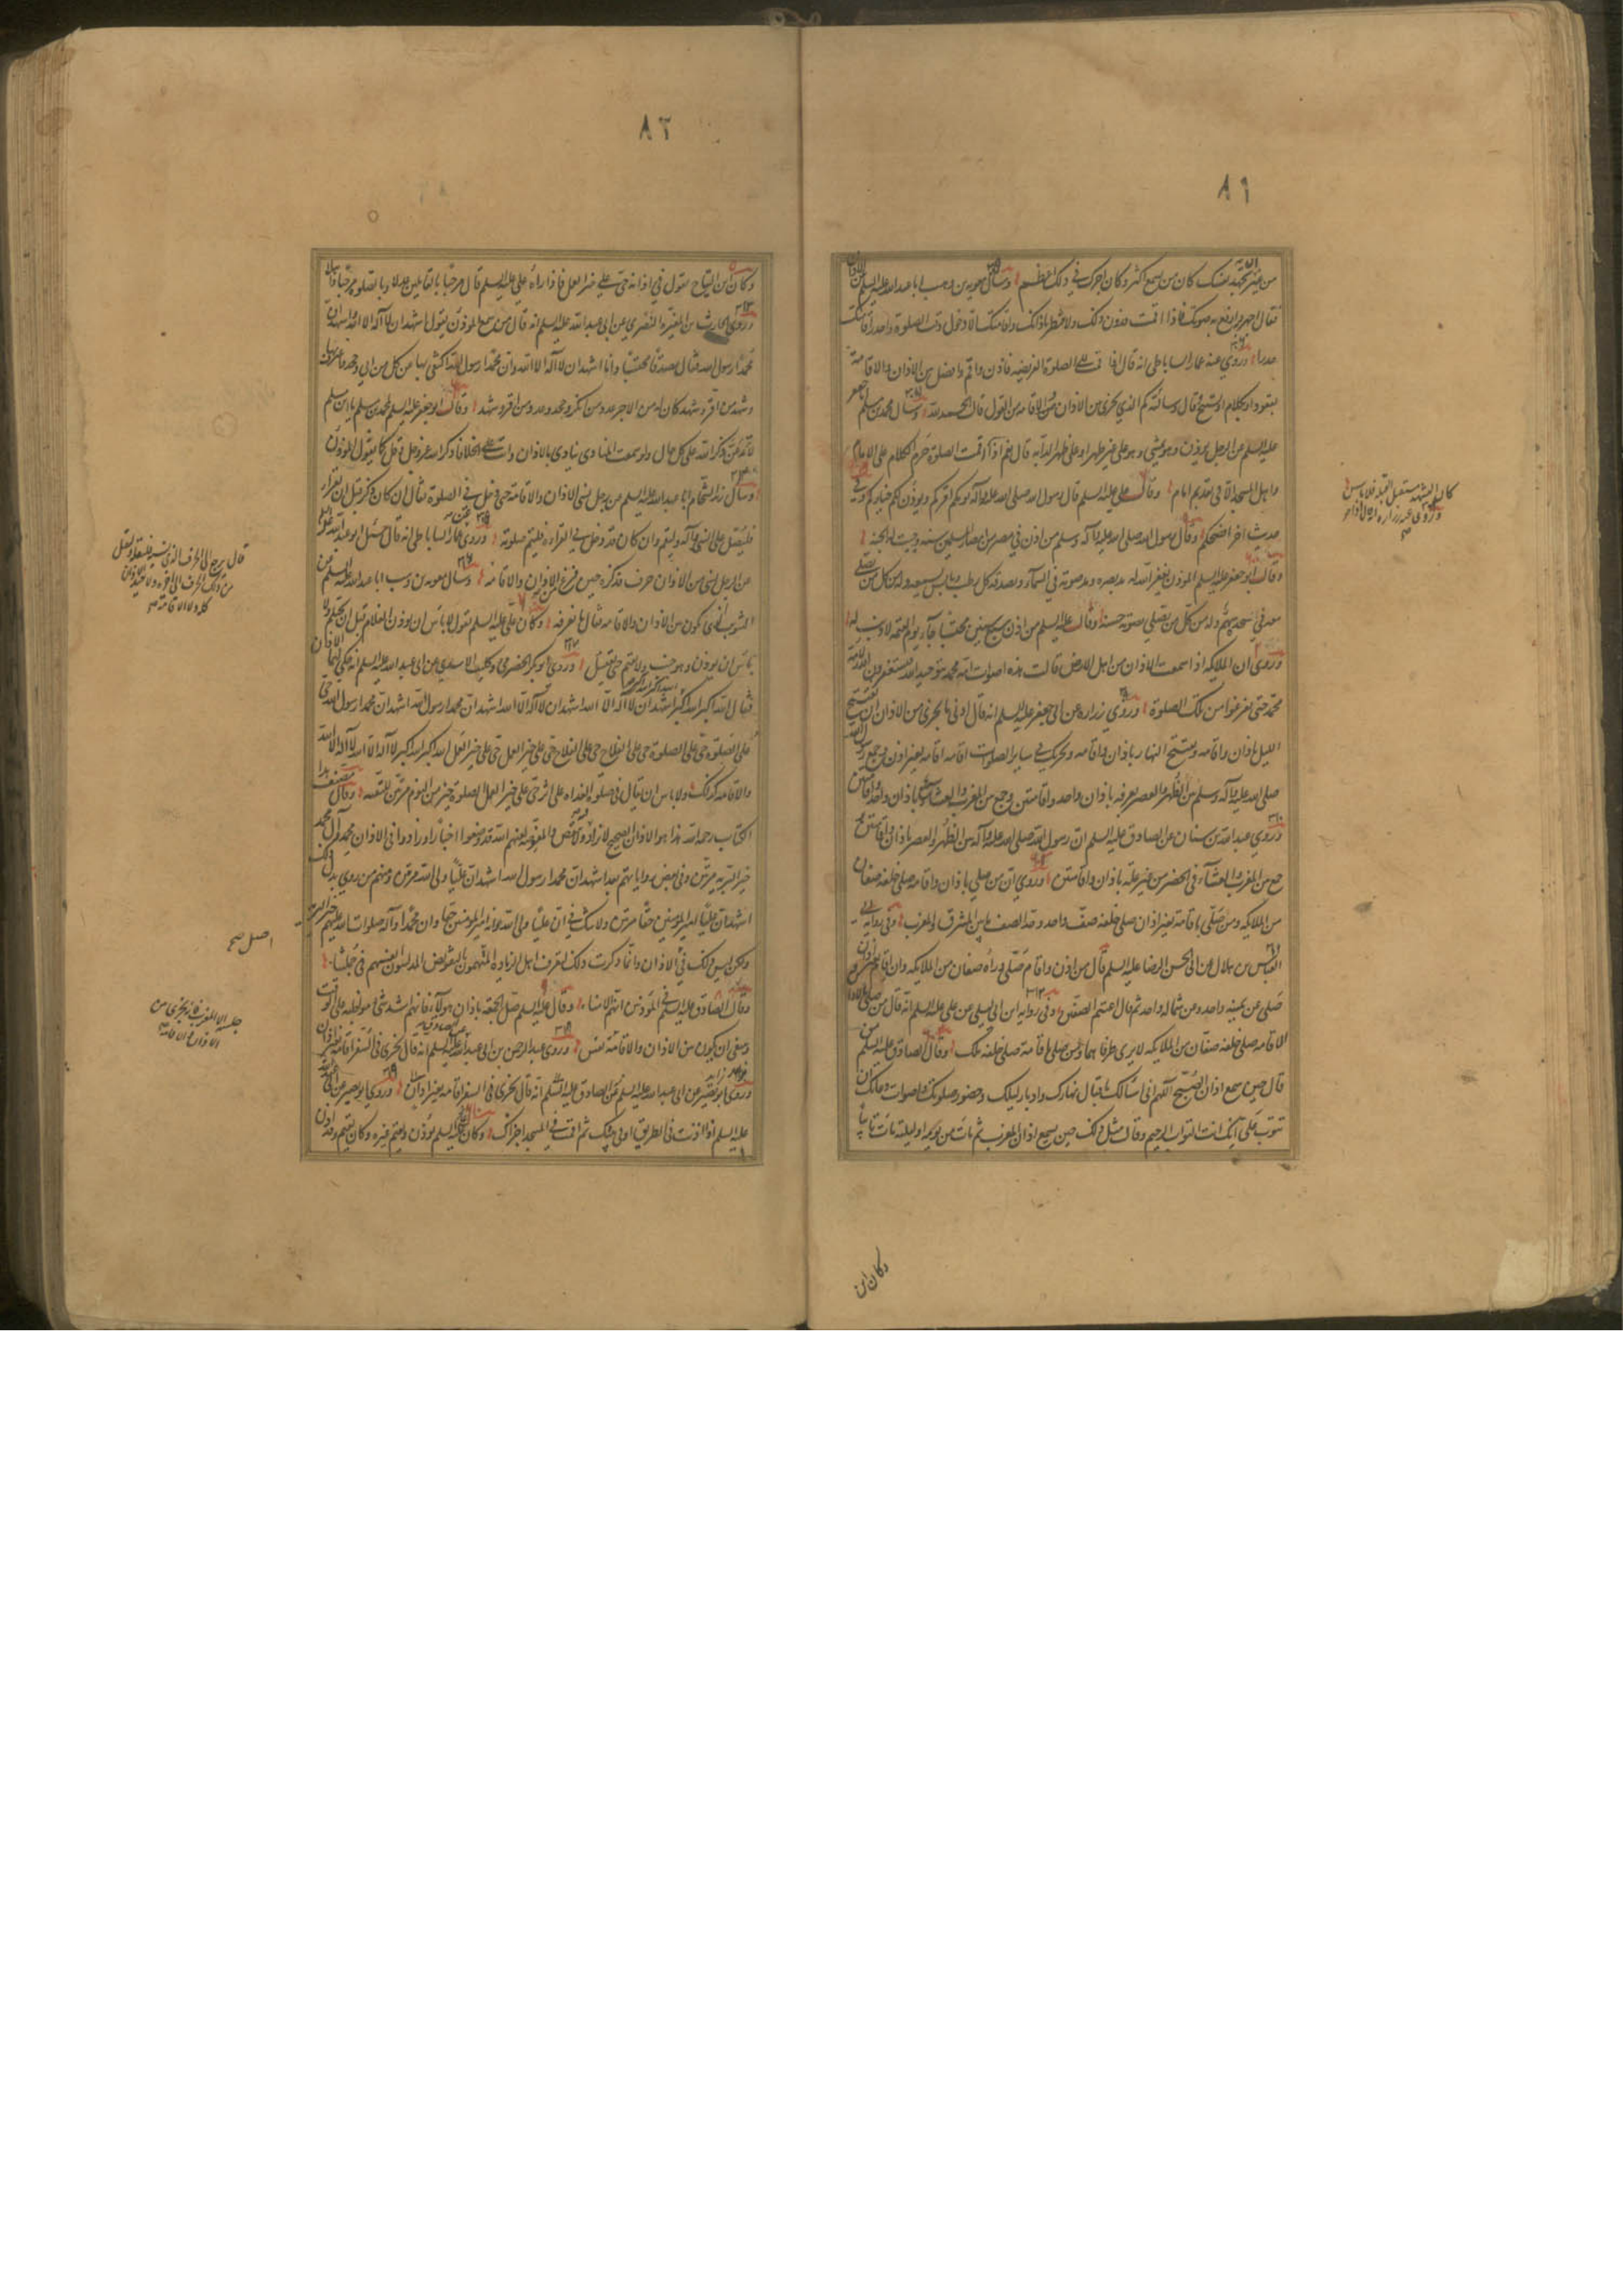 ٨١
من غير ان تجهد نفسك كان من يسمع اكثر وكان اجرك في ذلك اعظم وسأل معوية بن وهب ابا عبدالله عليه السلم عن الاذان
فقال اجهر وارفع به صوتك فاذا اقمت فدون ذلك ولا تنتظر باذانك واقامتك الا دخول وقت الصلوة واحدر اقامتك
حدرا وروي عنه عمار الساباطي انه قال اذا قمت الى الصلوة الفريضه فاذن واقم وافصل بين الاذان والاقامة
بقعود او كلام او تسبيح وقال وسالته كم الذي يجزي بين الاذان والاقامه من القول قال الحمد لله وسال محمد بن مسلم ابا جعفر
عليه السلم عن الرجل يؤذن وهو يمشي وهو على غير طهر او على ظهر الدابه قال نعم اذا
اقمت الصلوة حرم الكلام على الامام
واهل المسجد الا في تقديم امام وقال علي عليه السلم قال رسول الله صلى الله عليه واله يؤمكم اقرؤكم ويؤذن لكم خياركم وفي
حديث اخر افصحكم وقال رسول الله صلى الله عليه واله وسلم من اذن في مصر من امصار المسلمين سنة وجبت له الجنة
وقال ابو جعفر عليه السلم المؤذن يغفر الله له مد بصره ومد صوته في السمآء ويصدقه كل رطب ويابس يسمعه وله من كل من يصلي
معه في مسجده سهم وله من كل من يصلي بصوته حسنة وقال عليه السلم من اذن سبع سنين محتسبا جآء يوم القيمه لا ذنب له
وروي ان الملايكه اذا سمعت الاذان من اهل الارض قالت هذه اصوات امة محمد بتوحيد الله فيستغفرون الله لامة
محمد حتى يفرغوا من تلك الصلوة وروي زراره عن ابي جعفر عليه السلم انه قال ادنى ما يجزي من الاذان ان تفتتح
الليل باذان واقامه وتفتتح النهار باذان واقامه ويجزيك في ساير الصلوات اقامه اقامه بغير اذن وجمع رسول الله
صلى الله عليه واله وسلم بين الظهر والعصر بعرفه باذان واحد واقامتين وجمع بين المغرب والعشاء بجمع باذان واحد واقامتين
وروي عبد الله بن سنان عن الصادق عليه السلم ان رسول الله صلى الله عليه واله جمع بين الظهر والعصر باذان واقامتين و
جمع بين المغرب والعشآء في الحضر من غير علة باذان واقامتين وروي ان من صلى باذان واقامه صلى خلفه صفان
من الملايكه ومن صلى باقامة بغير اذان صلى خلفه صف واحد وحد الصف ما بين المشرق والمغرب وفي رواية
العباس بن هلال عن ابي الحسن الرضا عليه السلم قال من اذن واقام صلى وراءه صفان من الملايكه وان اقام بغير اذان
صلى عن يمينه واحد وعن شماله واحد ثم قال اغتنم الصفين وفي روايه ابن ابي ليلى عن علي عليه السلم انه قال من صلى باذان و
الاقامه صلى خلفه صفان من الملايكه لا يرى طرفاهما ومن صلى باقامة صلى خلفه ملك وقال الصادق عليه السلم من
قال حين يسمع اذان الصبح اللهم اني اسالك باقبال نهارك وادبار ليلك وحضور صلوتك واصوات دعاتك ان
تتوب علي انك انت التواب الرحيم وقال مثل ذلك حين يسمع اذان المغرب ثم مات من يومه او ليلته مات تائبا
وكان ابن
كان المتشهد مستقبل القبلة فلا باس
وروى عنه زراره انه قال اذا
٨٢
وكان ابن النباح يقول في اذانه حي على خير العمل فاذا راه علي عليه السلم قال مرحبا بالقايلين عدلا وبالصلوة مرحبا واهلا
وروي الحارث بن المغيرة النضري عن ابي عبد الله عليه السلم انه قال من سمع المؤذن يقول اشهد ان لا اله الا الله واشهد ان
محمدا رسول الله فقال مصدقا محتسبا وانا اشهد ان لا اله الا الله وان محمدا رسول الله اكتفي بها عن كل من ابى وجحد
وشهد من اقر وشهد كان له من الاجر عدد من انكر وجحد وعدد من اقر وشهد وقال ابو جعفر عليه السلم لمحمد بن مسلم يا ابن مسلم
لا تدعن ذكر الله على كل حال ولو سمعت المنادي ينادي بالاذان وانت على الخلا فاذكر الله عز وجل وقل كما يقول المؤذن
وسأل زيد الشحام ابا عبد الله عليه السلم عن رجل نسي الاذان والاقامة حتى دخل في الصلوة فقال ان كان ذكر قبل ان يقراء
فليصل على النبي واله وليقم وان كان قد دخل في القراءه فليتم صلوته وروي عن عمار الساباطي انه قال سئل ابو عبد الله عليه السلم
عن الرجل نسي من الاذان حرفا فذكره حين فرغ من الاذان والاقامة وسال معويه بن وهب ابا عبد الله عليه السلم عن
التثويب الذي يكون بين الاذان والاقامه فقال ما نعرفه وكان علي عليه السلم يقول لا باس ان يؤذن الغلام قبل ان يحتلم ولا
بأس ان يؤذن وهو جنب ولا يقيم حتى يغتسل وروي ابو بكر الحضرمي وكليب الاسدي عن ابي عبد الله عليه السلم انه حكى لهما الاذان
فقال الله اكبر الله اكبر الله اكبر الله اكبر اشهد ان لا اله الا الله اشهد ان لا اله الا الله اشهد ان محمدا رسول الله اشهد ان محمدا رسول الله حي
على الصلوة حي على الصلوة حي على الفلاح حي على الفلاح حي على خير العمل حي على خير العمل الله اكبر الله اكبر لا اله الا الله لا اله الا الله
والاقامه كذلك ولا باس ان يقال في صلوة الغداه على اثر حي على خير العمل الصلوة خير من النوم مرتين للتقيه وقال مصنف هذا
الكتاب رحمه الله هذا هو الاذان الصحيح لا يزاد فيه ولا ينقص منه والمفوضه لعنهم الله قد وضعوا اخبارا وزادوا في الاذان محمد وآل محمد
خير البريه مرتين وفي بعض رواياتهم بعد اشهد ان محمدا رسول الله اشهد ان عليا ولي الله مرتين ومنهم من روى بدل ذلك
اشهد ان عليا امير المؤمنين حقا مرتين ولا شك في ان عليا ولي الله وانه امير المؤمنين حقا وان محمدا واله صلوات الله عليهم خير البريه
ولكن ليس ذلك في الاذان وانما ذكرت ذلك ليعرف بهذه الزياده المتهمون بالتفويض المدلسون انفسهم في جملتنا
وقال الصادق عليه السلم في المؤذنين انهم الامناء وقال عليه السلم صل الجمعه باذان هولآء فانهم اشد شئ مواظبة على الوقت
وينبغي ان يكون بين الاذان والاقامة نفس وروى عبد الرحمن بن ابي عبد الله عن الصادق عليه السلم انه قال يجزي في السفر اقامه بغير اذان
وروى ابو بصير عن ابي عبد الله عليه السلم
عليه السلم اذا اذنت في الطريق او في بيتك ثم اقمت في المسجد اجزاك وكان علي عليه السلم يؤذن ويقيم غيره وكان يقيم وقد اذن
قال يرجع الى الحرف الذي نسيه فليقله وليقل
من ذلك الحرف الى اخره ولا يعيد الاذان
كله ولا الاقامة صح
اصل صح
جلسه الا المغرب فانه يجزي من
الاذان والاقامه